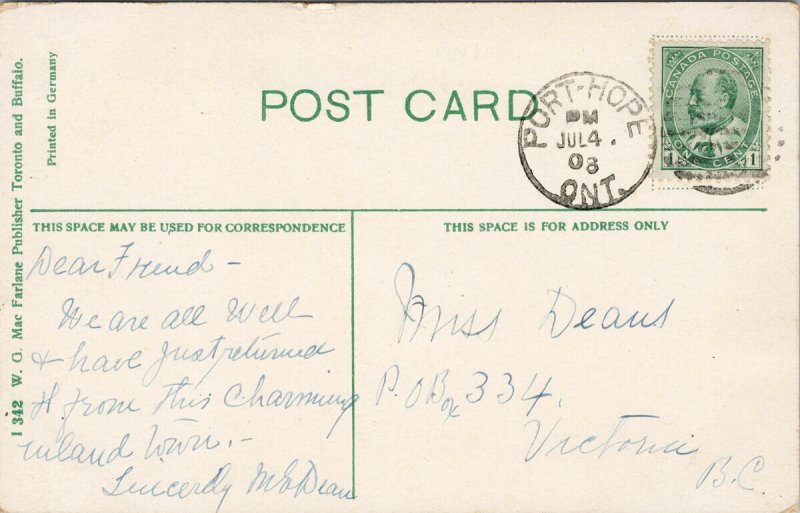 I 342 W. G. Mac Farlane Publisher Toronto and Buffalo.
Printed in Germany
POST CARD
PORT-HOPE
PM
JUL 4.
08
ONT.
CANADA POSTAGE
1 ONE CENT 1
THIS SPACE MAY BE USED FOR CORRESPONDENCE
Dear Friend -
We are all well
& have just returned
H. from this Charming
inland Town. -
Sincerely
THIS SPACE IS FOR ADDRESS ONLY
Miss Deans
P.O Box 334.
Victoria
B.C.